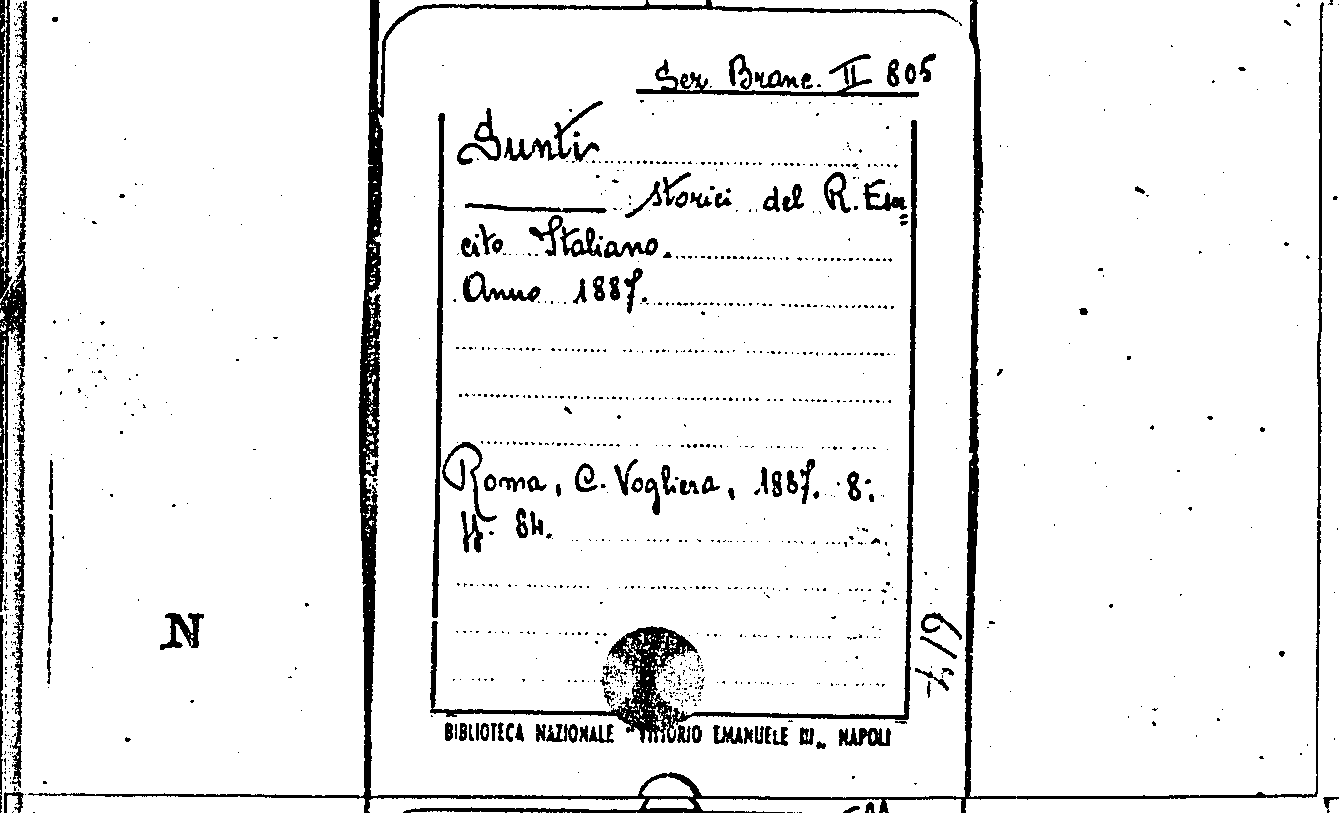 Sez. Branc. II 805
Sunti
storici del R. Eser=
cito Italiano.
Anno 1887.
Roma, C. Voghera, 1887. 8:
pp. 84.
N
BIBLIOTECA NAZIONALE "VITTORIO EMANUELE III„ NAPOLI